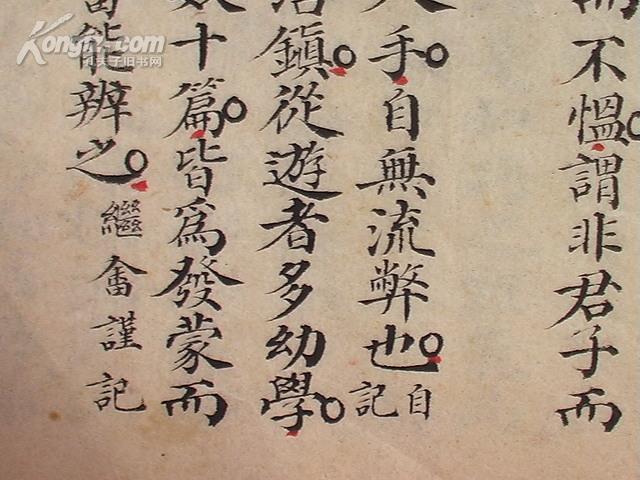 不愠謂非君子而
手。自無流弊也。自記
鎮。從遊者多幼學。
十篇。皆爲發蒙而
能辨之。繼畬謹記
Kongfz.com
孔夫子旧书网